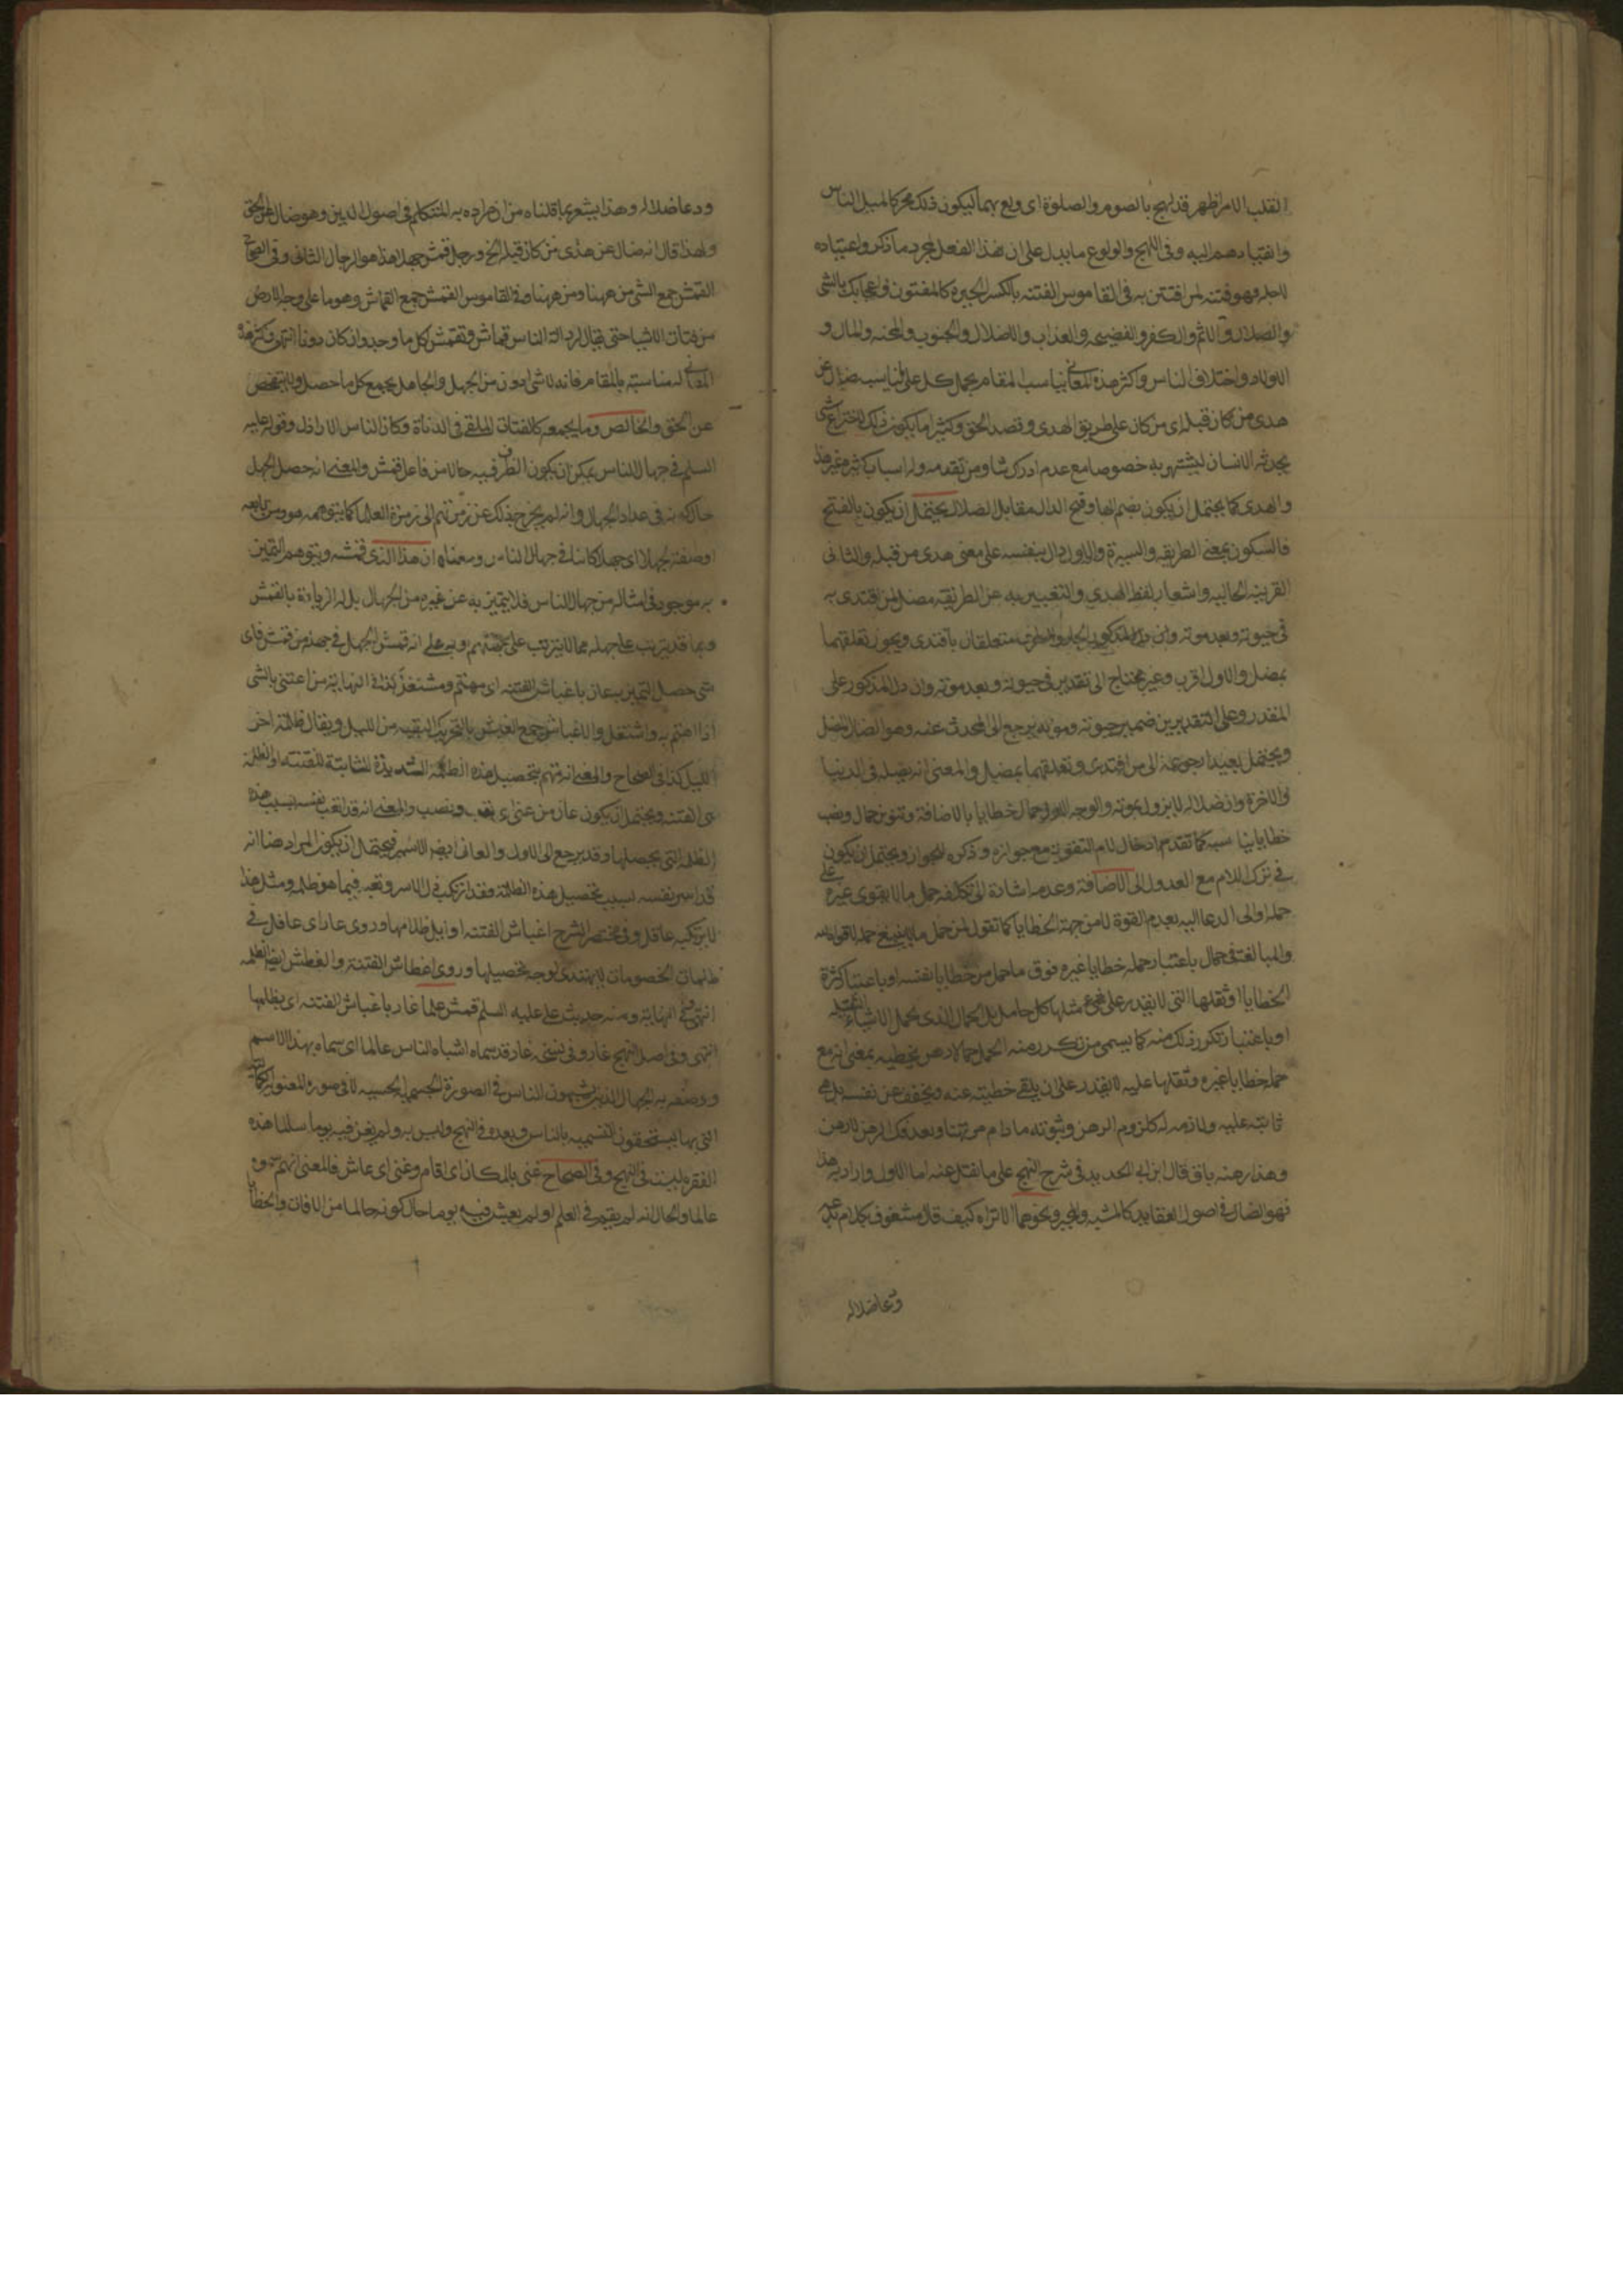 القلب الامر اظهر قد لهج بالصوم والصلوة اى ولع بهما ليكون ذلك محركا لميل الناس
وانقيادهم اليه وفى اللهج والولوع ما يدل على ان هذا الفعل لمجرد ما ذكر واعتياده
لاجله فهو فتنة لمن افتتن به فى القاموس الفتنه بالكسر الحيرة كالمفتون واعجابك بالشى
والضلال والاثم والكفر والفضيحه والعذاب والاضلال والجنون والمحنه والمال و
الاولاد واختلاف الناس واكثر هذه المعانى يناسب المقام يحمل كل على ما يناسبه ضال عن
هدى من كان قبله اى من كان على طريق الهدى وقصد الحق وكثيرا ما يكون ذلك لاختراع شى
يحدثه الانسان ليشتهر به خصوصا مع عدم ادراك شاو من تقدمه وله اسباب كثيرة غير هذا
والهدى كما يحتمل ان يكون بضم الهاء وفتح الدال مقابل الضلال يحتمل ان يكون بالفتح
فالسكون بمعنى الطريقه والسيرة والاول دال بنفسه على معنى هدى من قبله والثانى
القرينه الحاليه واشعار لفظ الهدى والتعبير به عن الطريقه مضل لمن اقتدى به
فى حيوته وبعد موته متعلقان باقتدى ويجوز تعلقهما
بمضل والاول اقرب وغير محتاج الى تقدير فى حيوته وبعد موته وان دل المذكور على
المقدر وعلى التقديرين ضمير حيوته وموته يرجع الى المحدث عنه وهو الضال المضل
ويحتمل بعيدا رجوعه الى من اقتدى وتعلقهما بمضل والمعنى انه يضله فى الدنيا
والاخرة وان ضلاله لا يزول بموته والوجه الاول حمال خطايا بالاضافة وتنوين حمال ونصب
خطايا يناسبه كما تقدم ادخال لام التقوية مع جوازه وذكره للجواز ويحتمل ان يكون
فى ترك اللام مع العدول الى الاضافة وعدمه اشادة الى تكلفه حمل ما لا يقوى غيره على
حمله اولى الدعا اليه بعدم القوة لا من جهة الخطايا كما تقول لمن حمل ما لا ينبغى حمله
والمبالغة فى حمال باعتبار حمله خطايا غيره فوق ما حمل من خطايا نفسه او باعتبار كثرة
الخطايا او ثقلها التى لا يقدر على مثلها كل حامل بل الحمال الذى يحمل الاشياء الثقيله
او باعتبار تكرر ذلك منه كما يسمى من تكرر منه الحمل حمالا رهن بخطيته بمعنى انه مع
حمله خطايا غيره وثقلها عليه لا يقدر على ان يلقى خطيته عنه ويخفف عن نفسه بل هى
ثابتة عليه ولازمه له كلزوم الرهن وثبوته ما دام مرتهنا وبعد فك الرهن لا رهن
وهذا رهنه باق قال ابن ابى الحديد فى شرح النهج على ما نقل عنه اما الاول واراد به هذا
فهو الضال فى اصول العقايد كالمشبه والمجبر ونحوهما الا تراه كيف قال مشغوف بكلام بدعه
ودعا ضلاله
ودعا ضلاله وهذا يشعر بما قلناه من ان مراده به المتكلم فى اصول الدين وهو ضال عن الحق
ولهذا قال انه ضال عن هدى من كان قبله الخ ورجل قمش جهلا هذا هو الرجل الثانى وفى الصحاح
القمش جمع الشى من ههنا ومن ههنا وفى القاموس القمش جمع القماش وهو ما على وجه الارض
من فتات الاشيا حتى يقال لرذالة الناس قماش وتقمش اكل ما وجد وان كان دونا انتهى وكثر هذه
المعانى له مناسبته بالمقام فانه لا شى ادون من الجهل والجاهل يجمع كل ما حصل ولا يتفحص
عن الحق والخالص وما يجمعه كالفتات الملقى فى الدناة وكان الناس الاراذل وقوله عليه
السلم فى جهال الناس يمكن ان يكون الظرف فيه حالا من فاعل قمش والمعنى انه حصل الجهل
حال كونه فى عداد الجهال وانه لم يخرج بذلك عن زمرتهم الى زمرة العلما كما يتوهمه هو ومن تابعه
او صفة لجهلا اى جهلا كائنا فى جهال الناس ومعناه ان هذا الذى قمشه ويتوهم التميز
به موجود فى امثاله من جهال الناس فلا يتميز به عن غيره من الجهال بل له الزيادة بالقمش
وبما قد يترتب على جهله مما لا يترتب على جهلهم
شى حصل التميز به عان باغباش الفتنه اى مهتم ومشتغل كذا فى النهاية من اعتنى بالشى
اذا اهتم به واشتغل والاغباش جمع الغبش بالتحريك البقيه من الليل ويقال ظلمة اخر
الليل كذا فى الصحاح والمعنى انه مهتم بتحصيل هذه الظلمة الشديدة المشابهة للفتنه او الظلمة
هى الفتنه ويحتمل ان يكون عان من عنى اى تعب ونصب والمعنى انه قد اتعب نفسه بسبب هذه
الظلمه التى يحصلها وقد يرجع الى الاول والعانى ايضا الاسير فيحتمل ان يكون المراد هنا انه
قد اسر نفسه بسبب تحصيل هذه الظلمة فقد ارتكب ذل الاسر وتعبه فيما هو ظلم ومثل هذا
لا يرتكبه عاقل وفى مختصر الشرح اغباش الفتنه اوايل ظلامها وروى غار اى غافل فى
ظلمات الخصومات لا يهتدى لوجه تخصيلها وروى اغطاش الفتنة والغطش ايضا الظلمه
انتهى وفى النهاية ومنه حديث على عليه السلم قمش علما غار باغباش الفتنه اى بظلمها
انتهى وفى اصل النهج غار وفى نسخة عار قد سماه اشباه الناس عالما اى سماه بهذا الاسم
ووصفه به الجهال الذين يشبهون الناس فى الصورة الجسميه الحسيه لا فى صورة المعنويه
التى بها يستحقون التسميه بالناس وبعده فى النهج وليس به ولم يغن فيه يوما سالما هذه
الفقره ليست فى النهج وفى الصحاح غنى بالمكان اى اقام وغنى اى عاش فالمعنى انهم سموه
عالما والحال انه لم يقم فى العلم او لم يعش فيه يوما حال كونه سالما من الافات والخطا